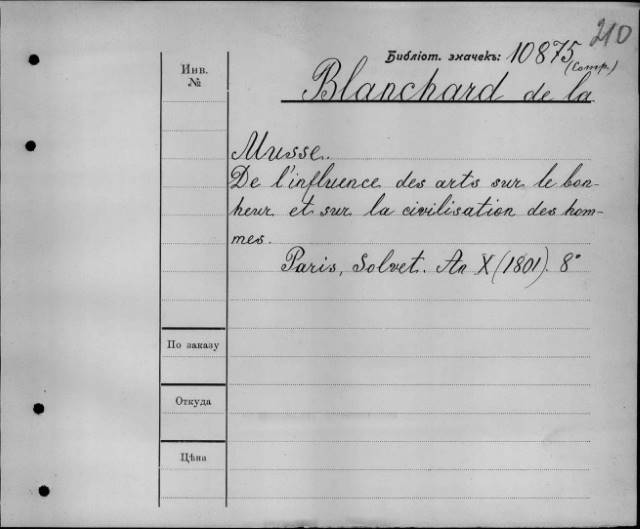 210
Библіот. значекъ: 10875
(Comp.)
Инв.
№
Blanchard de la
Musse.
De l'influence des arts sur le bon-
heur et sur la civilisation des hom-
mes.
Paris, Solvet. An X (1801). 8°
По заказу
Откуда
Цѣна